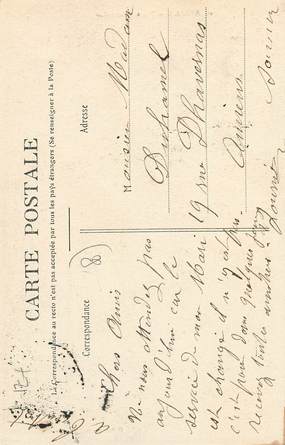 CARTE POSTALE
La Correspondance au recto n'est pas acceptée par tous les pays étrangers (Se renseigner à la Poste)
Correspondance
Adresse
8
Chers Amis
Ne nous attendez pas
aujourd'hui car le
service de mon Mari
est changé il n'y a pas
c'est pour dans quelques jours
recevez
Monsieur Madam
Duhamel
19 rue Dhavernas
Amiens
Somme